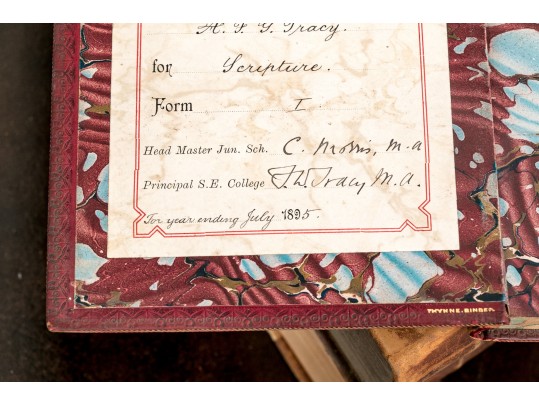 H. F. G. Tracy.
for Scripture.
Form I.
Head Master Jun. Sch. C. Morris, M.A
Principal S.E. College F. W. Tracy M.A.
For year ending July 1895.
THYNNE. BINDER